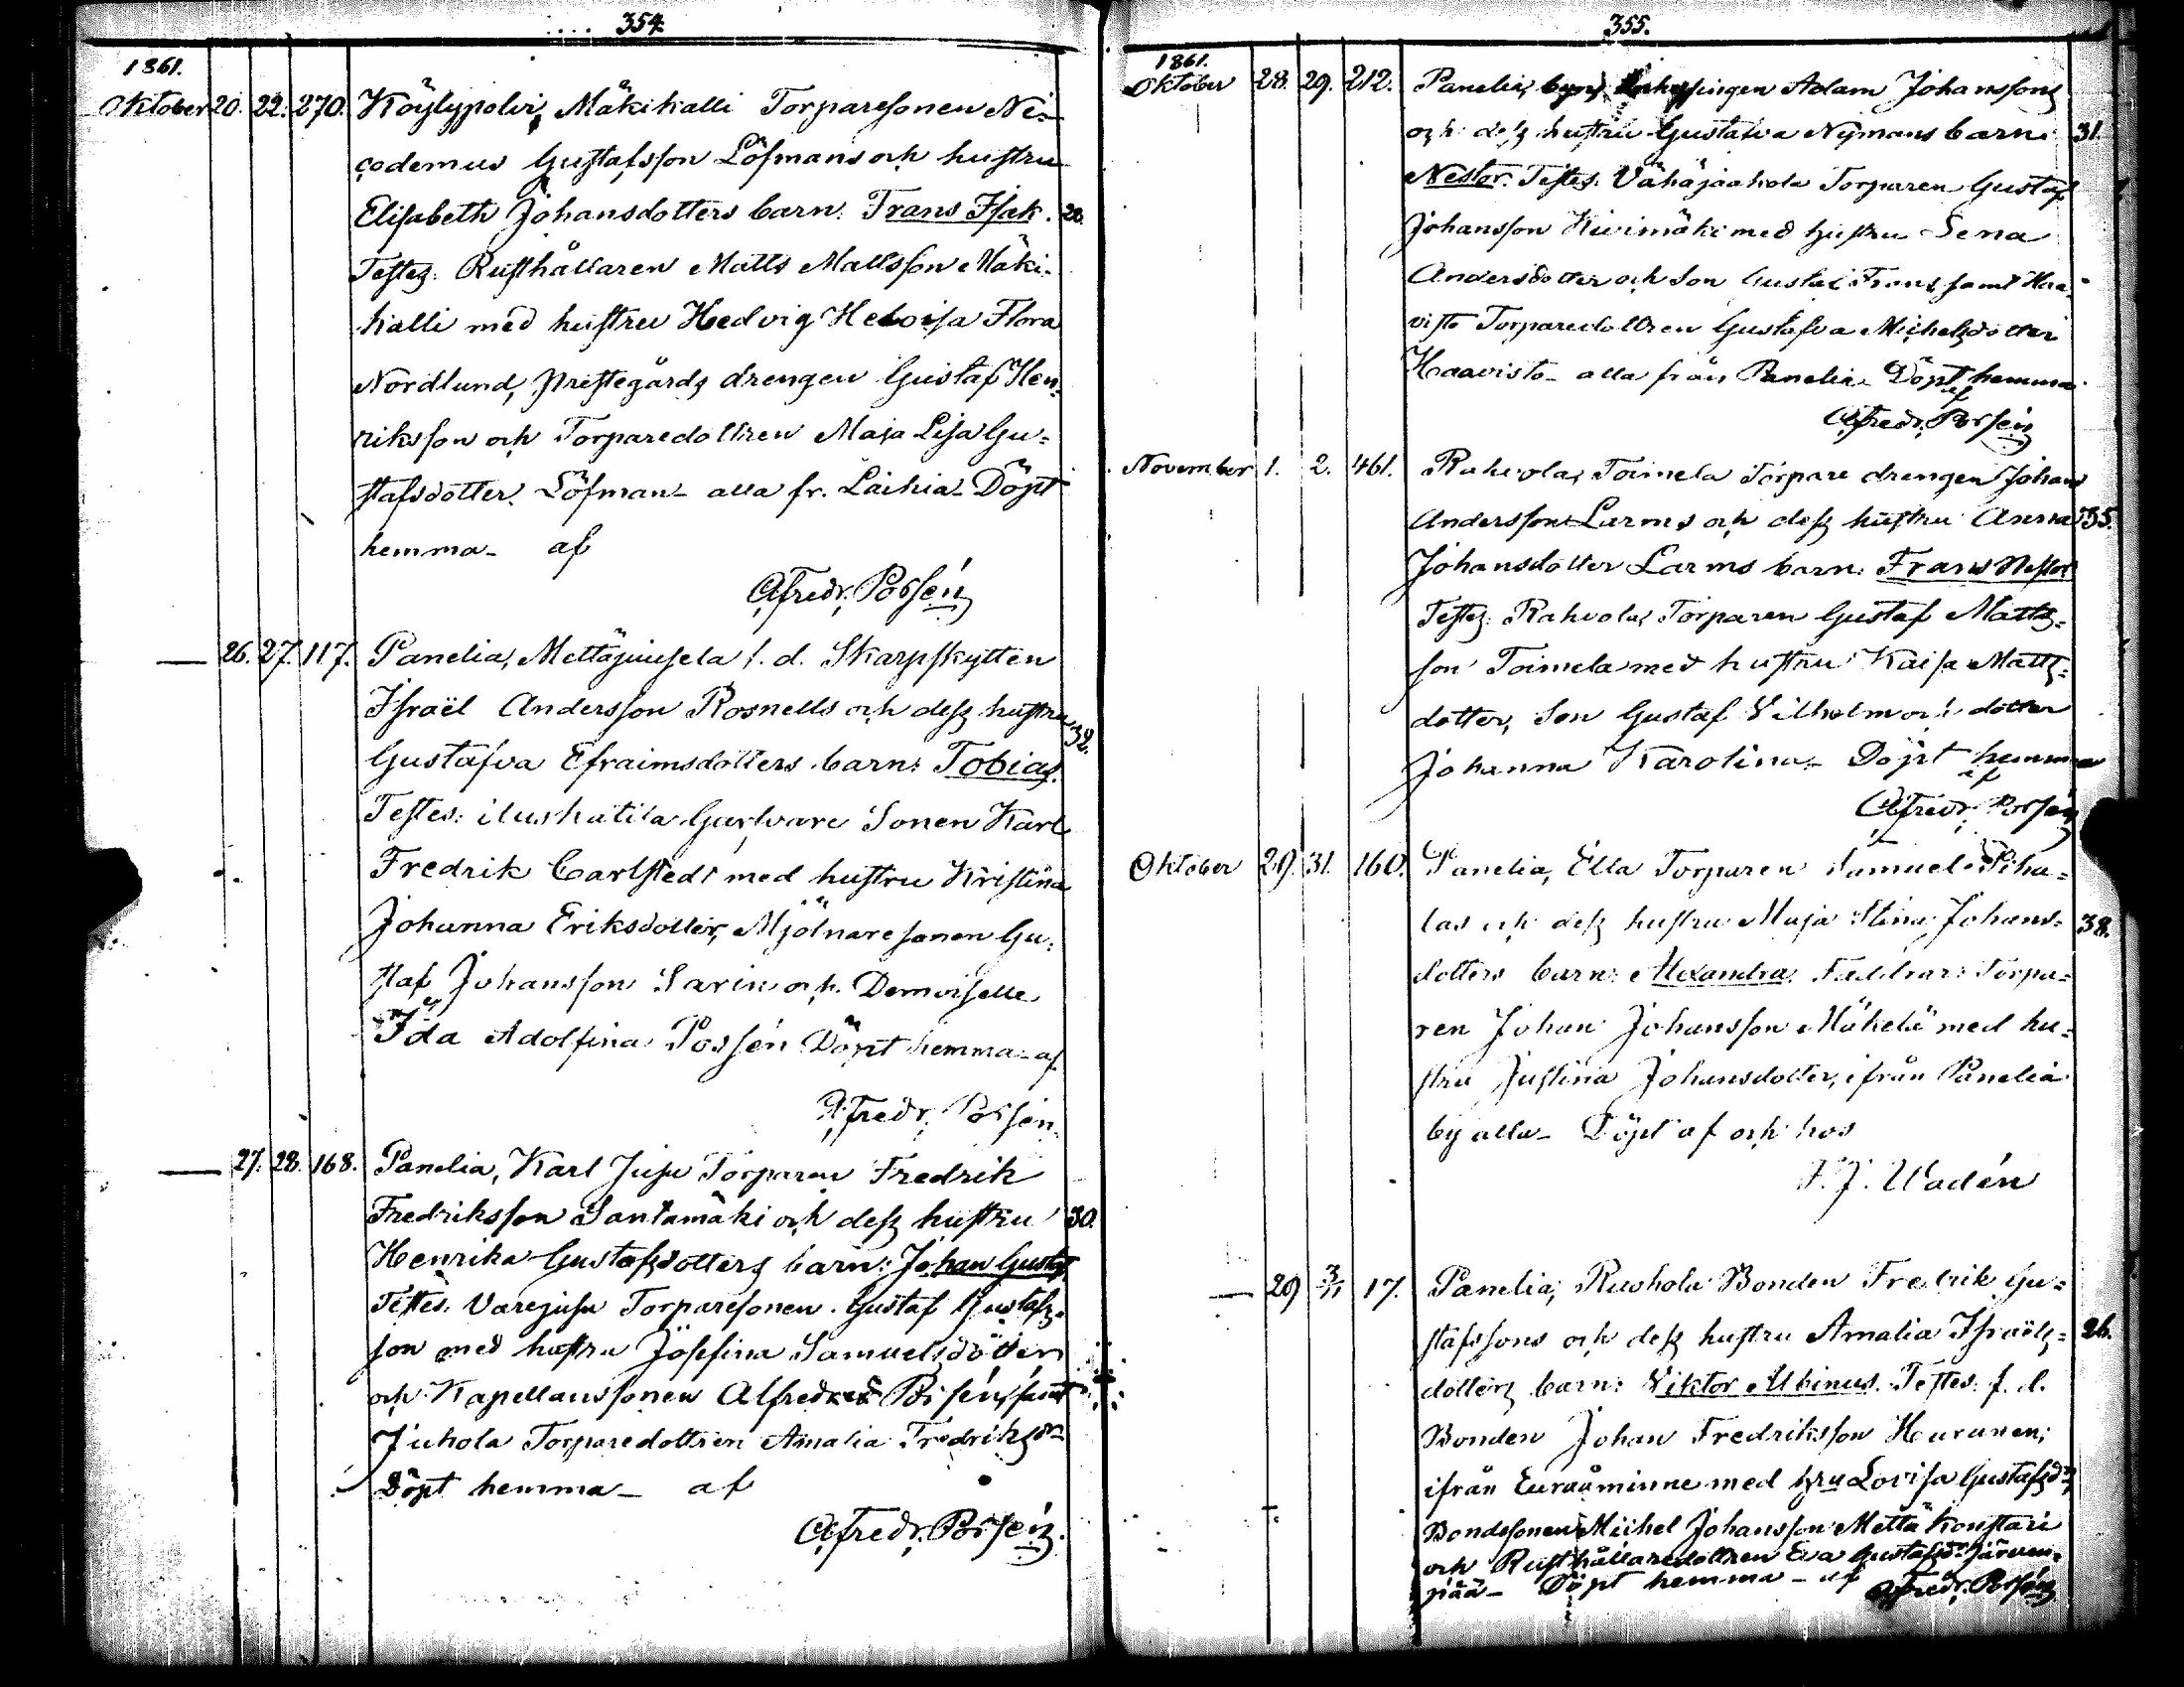 354.
1861.
Oktober 20. 22. 270. Köylypolvi, Mäkikalli Torparesonen Ni-
codemus Gustafsson Löfmans och hustru
Elisabeth Johansdotters barn: Frans Isak. 20.
Testes: Rusthållaren Matts Mattsson Mäki-
kalli med hustru Hedvig Helvisa Flora
Nordlund, Prestegårds drengen Gustaf Hen-
riksson och Torparedottren Maja Lisa Gu-
stafsdotter Löfman - alla fr. Laihia - Döpt
hemma - af
Afredr. Possén
— 26. 27. 117. Panelia, Mettäjuusela f. d. Skarpskytten
Israël Andersson Rosnells och dess hustru 32.
Gustafva Efraimsdotters barn: Tobias.
Testes: Garfvare Sonen Karl
Fredrik Carlstedt med hustru Kristina
Johanna Eriksdotter, Mjölnaresonen Gu-
staf Johansson Savin och Demoiselle
Ida Adolfina Possén Döpt hemma - af
Afredr. Possén.
— 27. 28. 168. Panelia, Karl Juju Torparen Fredrik
Fredriksson Santamäki och dess hustru 30.
Henrika Gustafsdotters barn: Johan Gustaf
Testes: Torparesonen Gustaf Gustafs-
son med hustru Josefina Samuelsdotter
och Kapellanssonen Alfred Possén, samt
Juhola Torparedottren Amalia Fredriksdr
Döpt hemma - af
Afredr. Possén.
355.
1861.
Oktober 28. 29. 212. Panelia, by Adam Johanssons
och dess hustru Gustafva Nymans barn: 31.
Nestor. Testes: Vähäjaakola Torparen Gustaf
Johansson Kivimäki med hustru Lena
Andersdotter och Son Gustaf Frans samt Haa-
visto Torparedottren Gustafva Michelsdotter
Haavisto - alla från Panelia - Döpt hemma
af
Afredr. Possén
November 1. 2. 461. Rahvola, Toimela Torpare drengen Johan
Anderssons Larms och dess hustru Anna 35.
Johansdotter Larms barn: Frans Nestor
Testes: Rahvola, Torparen Gustaf Matts-
son Toimela med hustru Kaisa Matts-
dotter, Son Gustaf Vilhelm och dotter
Johanna Karolina - Döpt hemma
af
Afredr. Possén
Oktober 29. 31. 160. Panelia, Ella Torparen Samuel Piha-
las och dess hustru Maja Stina Johans- 38.
dotters barn: Alexandra. Faddrar: Torpa-
ren Johan Johansson Mäkelä med hu-
stru Justina Johansdotter, ifrån Panelia
by alla - Döpt af och hos
F. J. Wadén
— 29 3/11 17. Panelia, Ruohola Bonden Fredrik Gu-
stafssons och dess hustru Amalia Israëls- 26.
dotters barn: Viktor Albinus. Testes: f. d.
Bonden Johan Fredriksson Hurunen,
ifrån Euraåminne med hru Lovisa Gustafsdr,
Bondesonen Michel Johansson Mettä Konstari
och Rusthållaredottren Eva Gustafsdr Järven-
pää - Döpt hemma - af Afredr. Possén